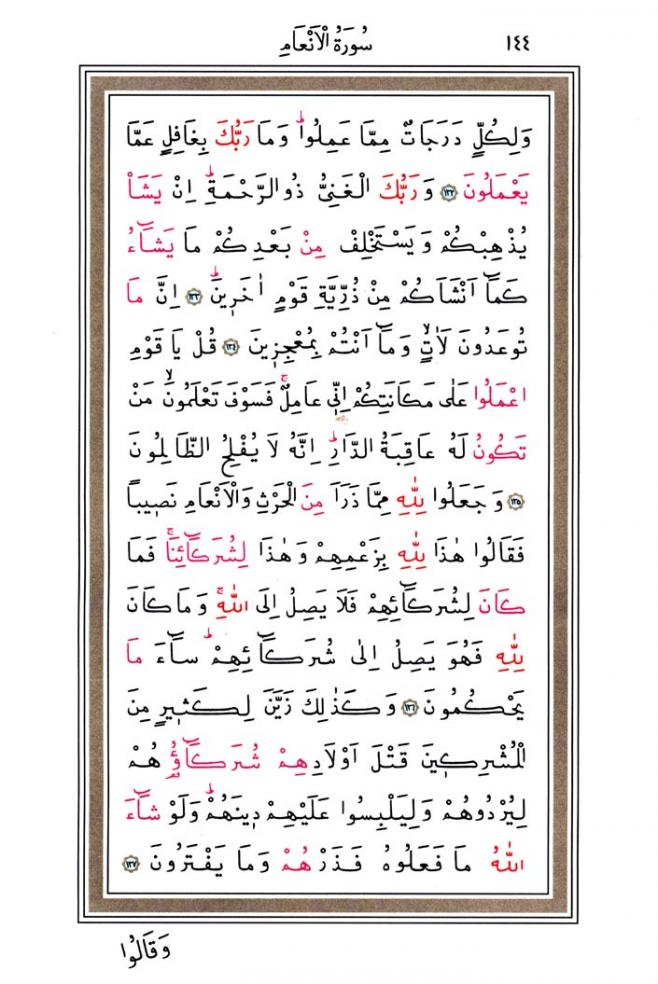 سُورَةُ الْاَنْعَامِ ١٤٤
وَلِكُلٍّ دَرَجَاتٌ مِمَّا عَمِلُواۜ وَمَا رَبُّكَ بِغَافِلٍ عَمَّا
يَعْمَلُونَ ﴿١٣٢﴾ وَرَبُّكَ الْغَنِىُّ ذُوالرَّحْمَةِۜ اِنْ يَشَأْ
يُذْهِبْكُمْ وَيَسْتَخْلِفْ مِنْ بَعْدِكُمْ مَا يَشَٓاءُ
كَمَٓا اَنْشَاَكُمْ مِنْ ذُرِّيَّةِ قَوْمٍ اٰخَرِينَۜ ﴿١٣٣﴾ اِنَّ مَا
تُوعَدُونَ لَاٰتٍۙ وَمَٓا اَنْتُمْ بِمُعْجِزِينَ ﴿١٣٤﴾ قُلْ يَا قَوْمِ
اعْمَلُوا عَلٰى مَكَانَتِكُمْ اِنّ۪ى عَامِلٌۚ فَسَوْفَ تَعْلَمُونَۙ مَنْ
تَكُونُ لَهُ عَاقِبَةُ الدَّارِۜ اِنَّهُ لَا يُفْلِحُ الظَّالِمُونَ
﴿١٣٥﴾ وَجَعَلُوا لِلّٰهِ مِمَّا ذَرَاَ مِنَ الْحَرْثِ وَالْاَنْعَامِ نَص۪يباً
فَقَالُوا هٰذَا لِلّٰهِ بِزَعْمِهِمْ وَهٰذَا لِشُرَكَٓائِنَاۚ فَمَا
كَانَ لِشُرَكَٓائِهِمْ فَلَا يَصِلُ اِلَى اللّٰهِۚ وَمَا كَانَ
لِلّٰهِ فَهُوَ يَصِلُ اِلٰى شُرَكَٓائِهِمْۜ سَٓاءَ مَا
يَحْكُمُونَ ﴿١٣٦﴾ وَكَذٰلِكَ زَيَّنَ لِكَث۪يرٍ مِنَ
الْمُشْرِك۪ينَ قَتْلَ اَوْلَادِهِمْ شُرَكَٓاؤُ۬هُمْ
لِيُرْدُوهُمْ وَلِيَلْبِسُوا عَلَيْهِمْ د۪ينَهُمْۜ وَلَوْ شَٓاءَ
اللّٰهُ مَا فَعَلُوهُ فَذَرْهُمْ وَمَا يَفْتَرُونَ ﴿١٣٧﴾
وَقَالُوا